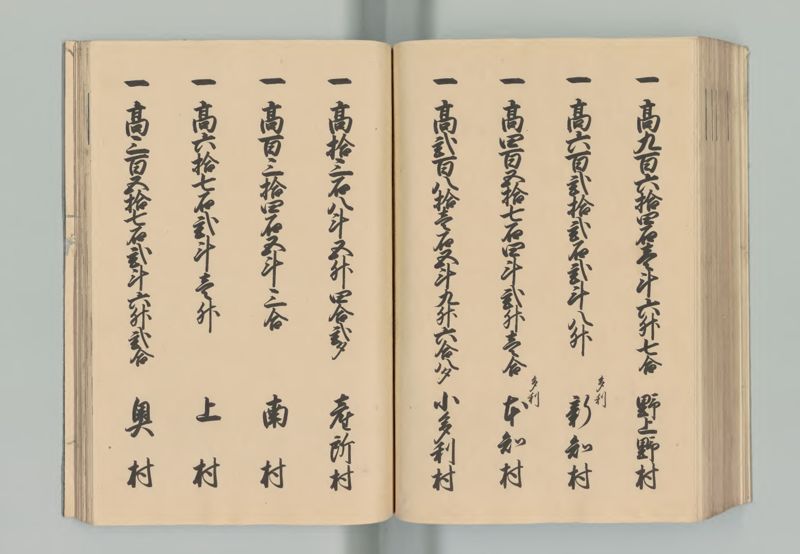 一 高九百六拾四石壱斗六升七合 野上野村
一 高六百弐拾弐石弐斗八升 多利 新郷村
一 高四百五拾七石四斗弐升壱合 多利 本郷村
一 高弐百八拾壱石五斗九升六合八夕 小多利村
一 高拾三石八斗五升四合弐夕 声所村
一 高百三拾四石五斗三合 南村
一 高六拾七石弐斗壱升 上村
一 高三百五拾七石弐斗六升弐合 奥村